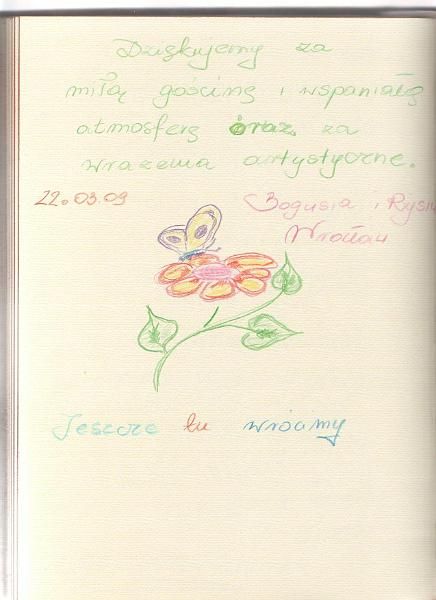 Dziękujemy za
miłą gościnę i wspaniałą
atmosferę oraz za
wrażenia artystyczne.
22.03.09
Bogusia i Rysiu
Wrocław
Jeszcze tu wrócimy